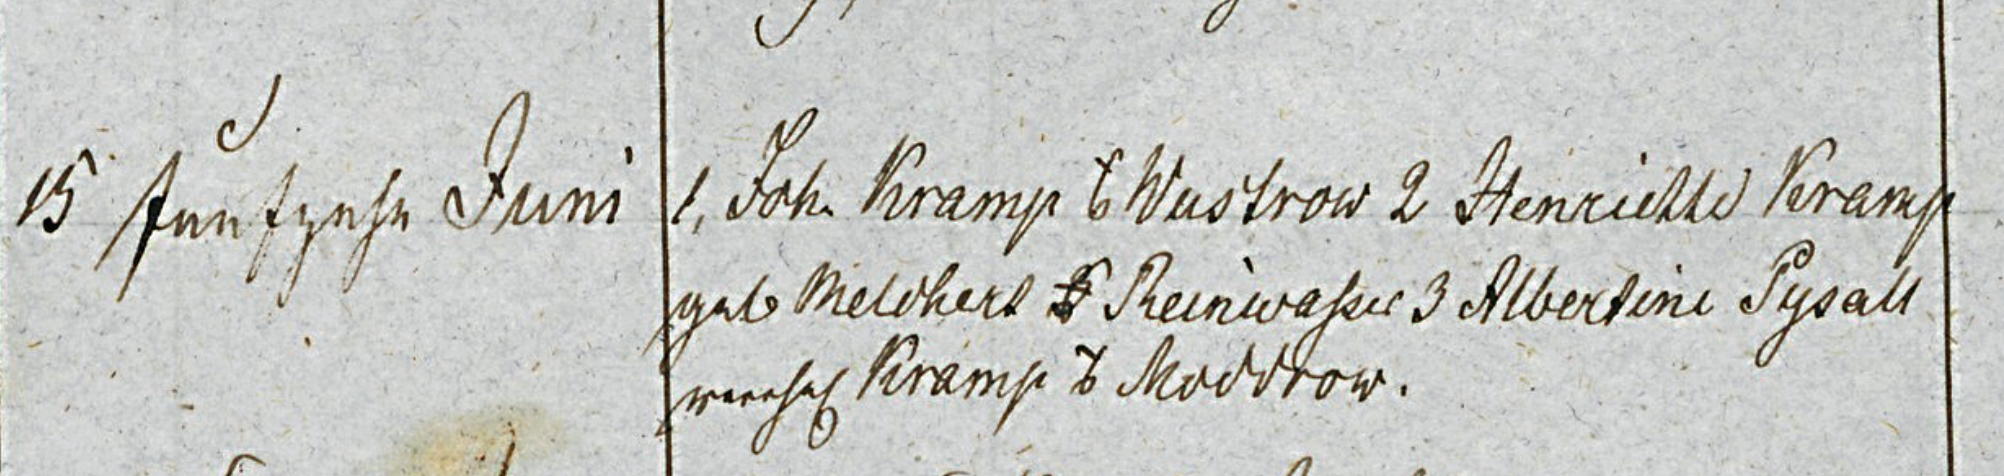 15 funfzehn Juni
1, Joh. Kramp Wustrow 2 Henriette Kramp
geb Melchert Reinwasser 3 Albertine Pysall
verehel Kramp Moddrow.